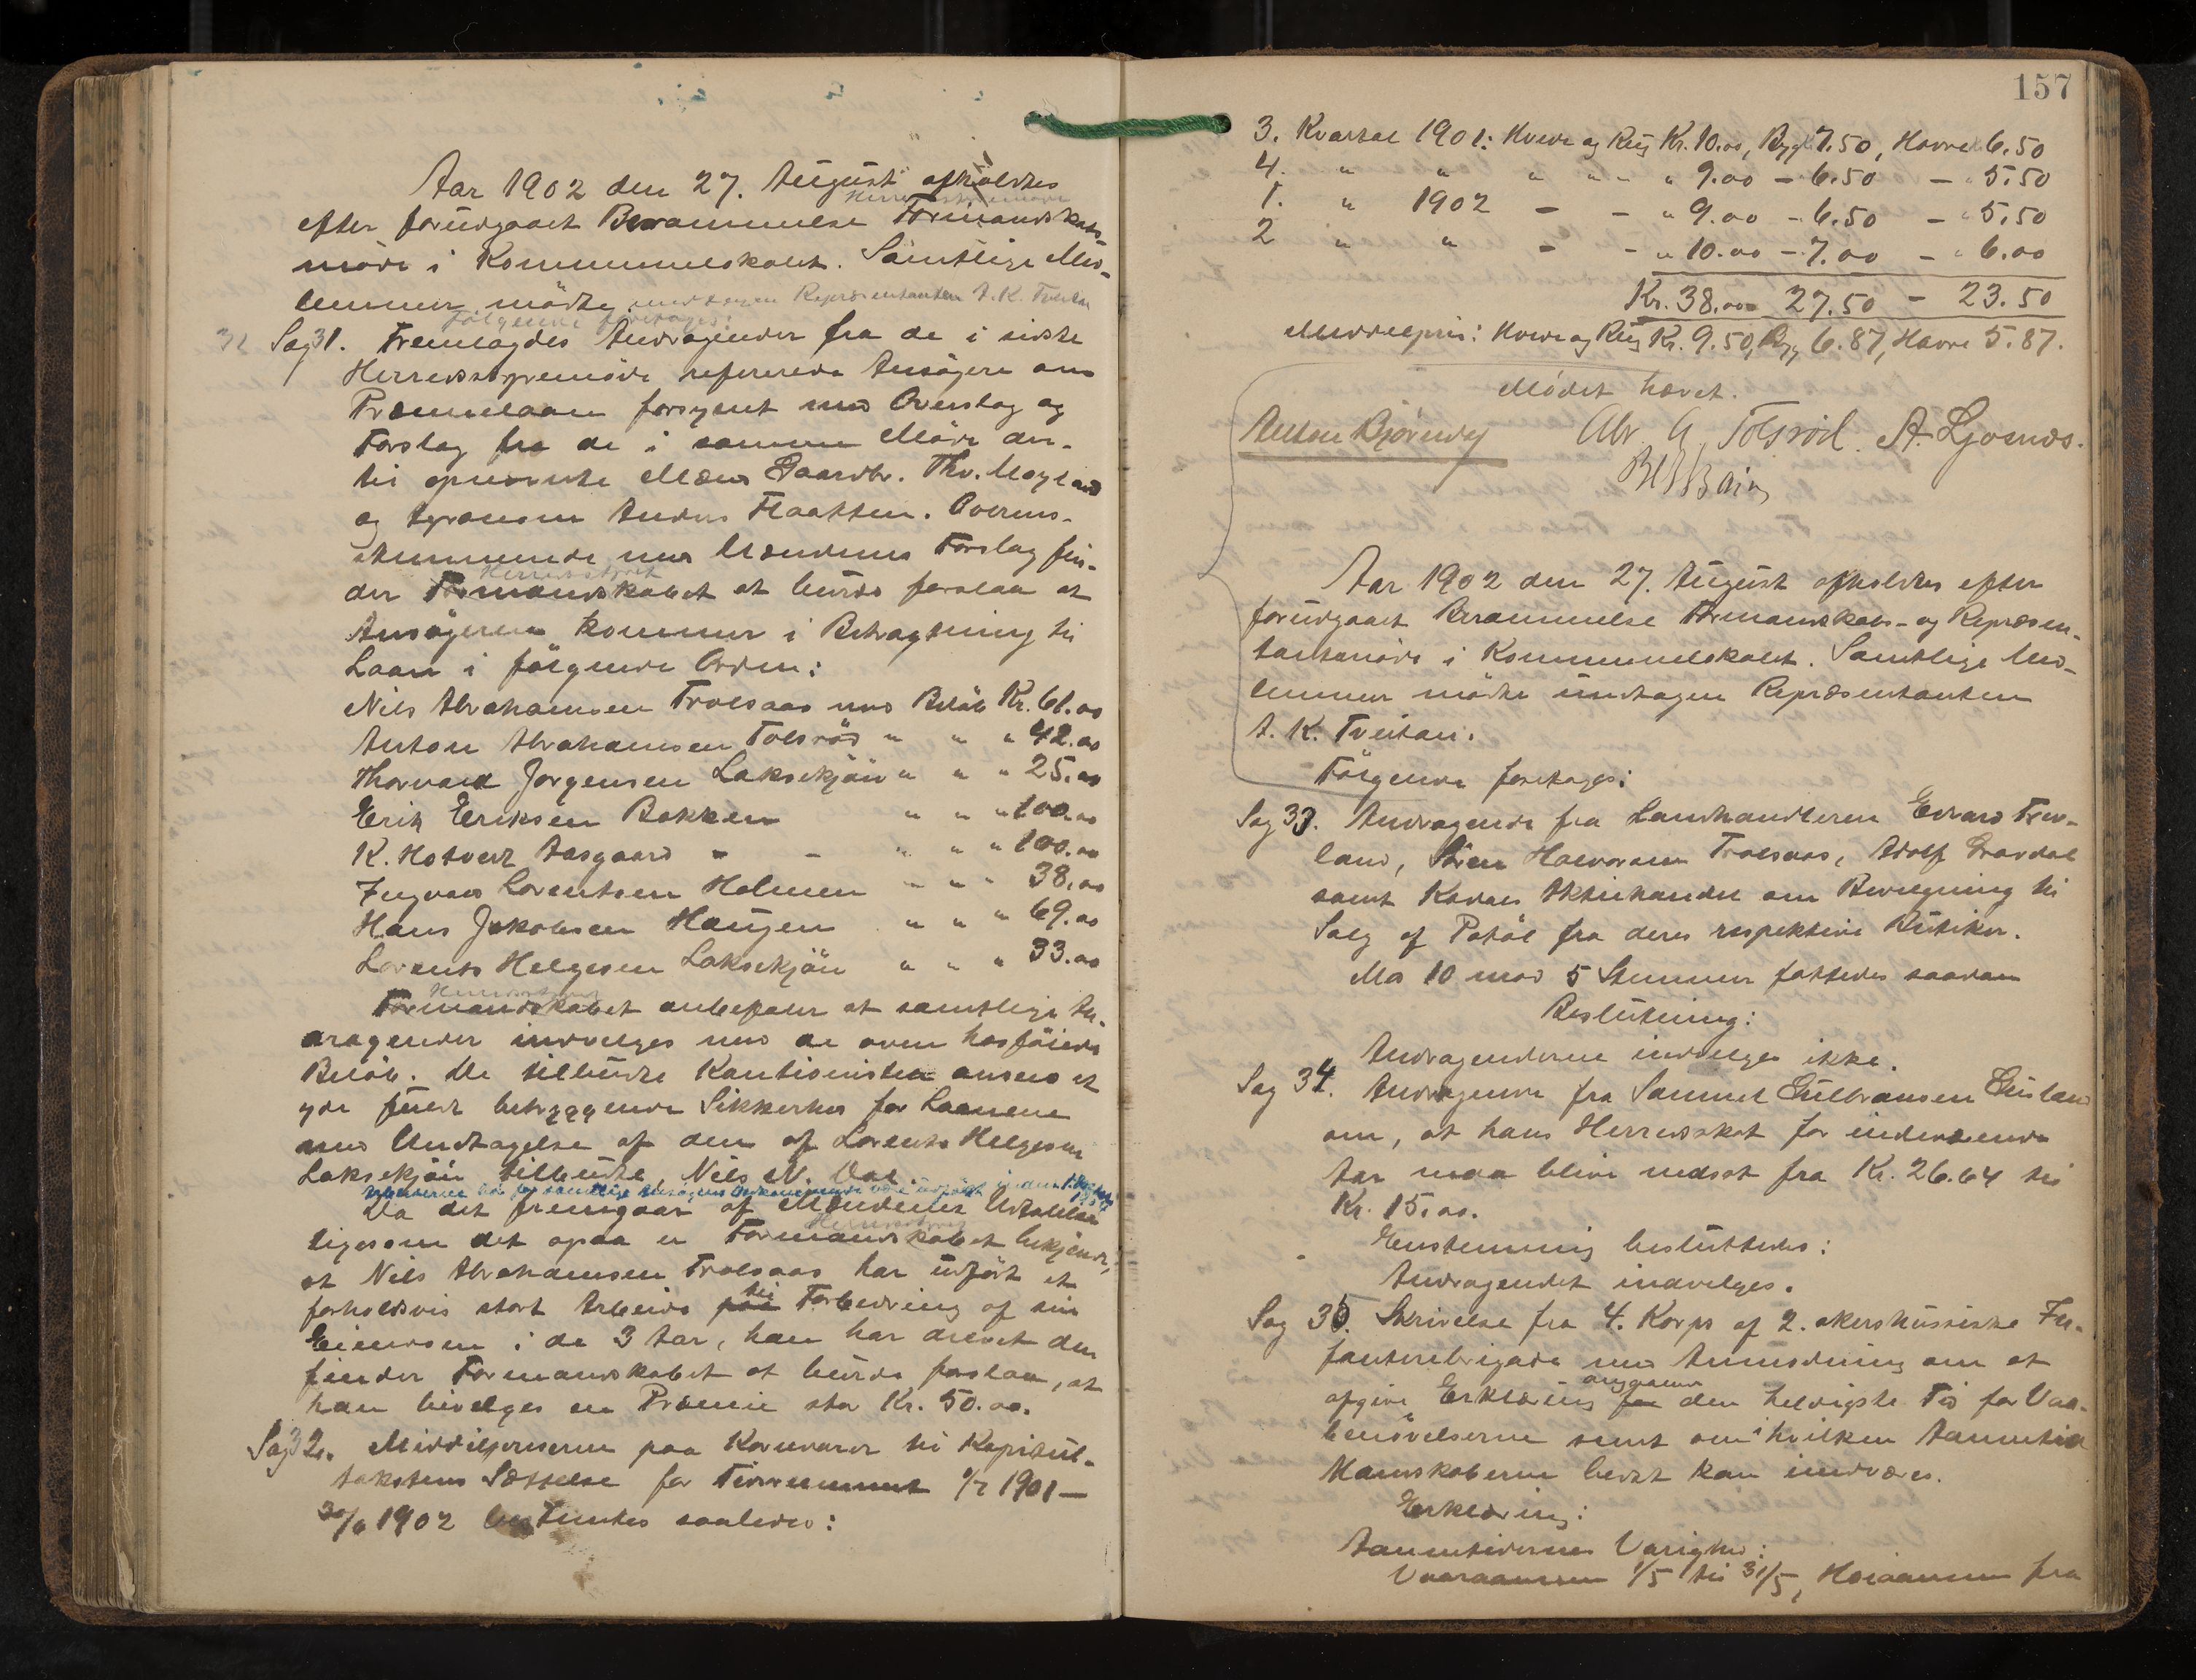 Aar 1902 den 27. August afholdtes
Herredsstyremøde
efter forudgaaet Berammelse Formandskabs-
møde i Kommunelokalet. Samtlige Med-
lemmer mødte, undtagen Repræsentanten A. K. Tveitan
Følgende foretages:
Sag 31. Fremlagdes Andragender fra de i sidste
Herredsstyremøde refererede Ansøgere om
Præmielaan forsynet med Overslag og
Forslag fra de i samme Møde der-
til opnævnte Mænd Gaardbr. Thv. Moyland
og Agronom Anders Flaatten. Overens-
stemmende med Mændenes Forslag fin-
Herredsstyret
der Formandskabet at burde foreslaa at
Ansøgerne kommer i Betragtning til
Laan i følgende Orden:
Nils Abrahamsen Trolsaas med Beløb Kr. 61.00
Anton Abrahamsen Tolsrød " " " 42.00
Thorvald Jørgensen Laksekjøn " " " 25.00
Erik Eriksen Bakken " " " 100.00
K. Hotvedt Aasgaard - - " " " 100.00
Ingvald Lorentsen Holmen " " " 38.00
Hans Jakobsen Haugen " " " 69.00
Lorents Helgesen Laksekjøn " " " 33.00
Herredsstyret
Formandskabet anbefaler at samtlige An-
dragender indvilges med de oven hosføiede
Beløb. De tilbudte Kautionister ansees at
yde fuldt betryggende Sikkerhed for Laanene
med Undtagelse af den af Lorents Helgesen
Laksekjøn tilbudte Nils N. Dal.
Arbeiderne bør for samtlige Ansøgeres Vedkommende være udført inden 1. Oktober
Da det fremgaar af Mændenes Udtalelse
Herredsstyret
ligesom det ogsaa er Formandskabet bekjendt,
at Nils Abrahamsen Trolsaas har udført et
forholdsvis stort Arbeide paa til Forbedring af sin
Eiendom i de 3 Aar, han har drevet den
finder Formandskabet at burde foreslaa, at
han bevilges en Præmie stor Kr. 50.00.
Sag 32. Middelpriserne paa Kornvarer til Kapitul-
takstens Sættelse for Tidsrummet 1/7 1901 —
30/6 1902 bestemtes saaledes:
157
3. Kvartal 1901: Hvede og Rug Kr. 10.00, Byg 7.50, Havre 6.50
4. " " " " " " 9.00 - 6.50 - " 5.50
1. " 1902 - - " 9.00 - 6.50 - " 5.50
2 " " - - " 10.00 - 7.00 - " 6.00
Kr. 38.00 - 27.50 - 23.50
Middelpris: Hvede og Rug Kr. 9.50, Byg 6.87, Havre 5.87.
Mødet hævet.
Anton Bjørndal Abr. A. Tolsrød. A. Ljosnæs.
Aar 1902 den 27. August afholdtes efter
forudgaaet Berammelse Formandskabs- og Repræsen-
tantmøde i Kommunelokalet. Samtlige Med-
lemmer mødte undtagen Repræsentanten
A. K. Tveitan.
Følgende foretages:
Sag 33. Andragende fra Landhandlerne Edvard Trev-
land, Søren Halvorsen Trolsaas, Adolf Grardal
samt Kodals Aktiehandel om Bevilgning til
Salg af Potøl fra deres respektive Butiker.
Med 10 mod 5 Stemmer fattedes saadan
Beslutning:
Andragenderne indvilges ikke.
Sag 34. Andragende fra Samuel Gulbransen Gusland
om, at hans Herredsskat for indeværende
Aar maa blive nedsat fra Kr. 26.64 til
Kr. 15.00.
Enstemmig besluttedes:
Andragendet indvilges.
Sag 35. Skrivelse fra 4. Korps af 2. akershusiske In-
fanteribrigade med Anmodning om at
angaaende
afgive Erklæring for den heldigste Tid for Vaa-
benøvelserne samt om i hvilken Aannetid
Mandskaberne bedst kan undværes.
Erklæring:
Aannetidernes Varighed:
Vaaraannen 1/5 til 31/5, Høiaannen fra